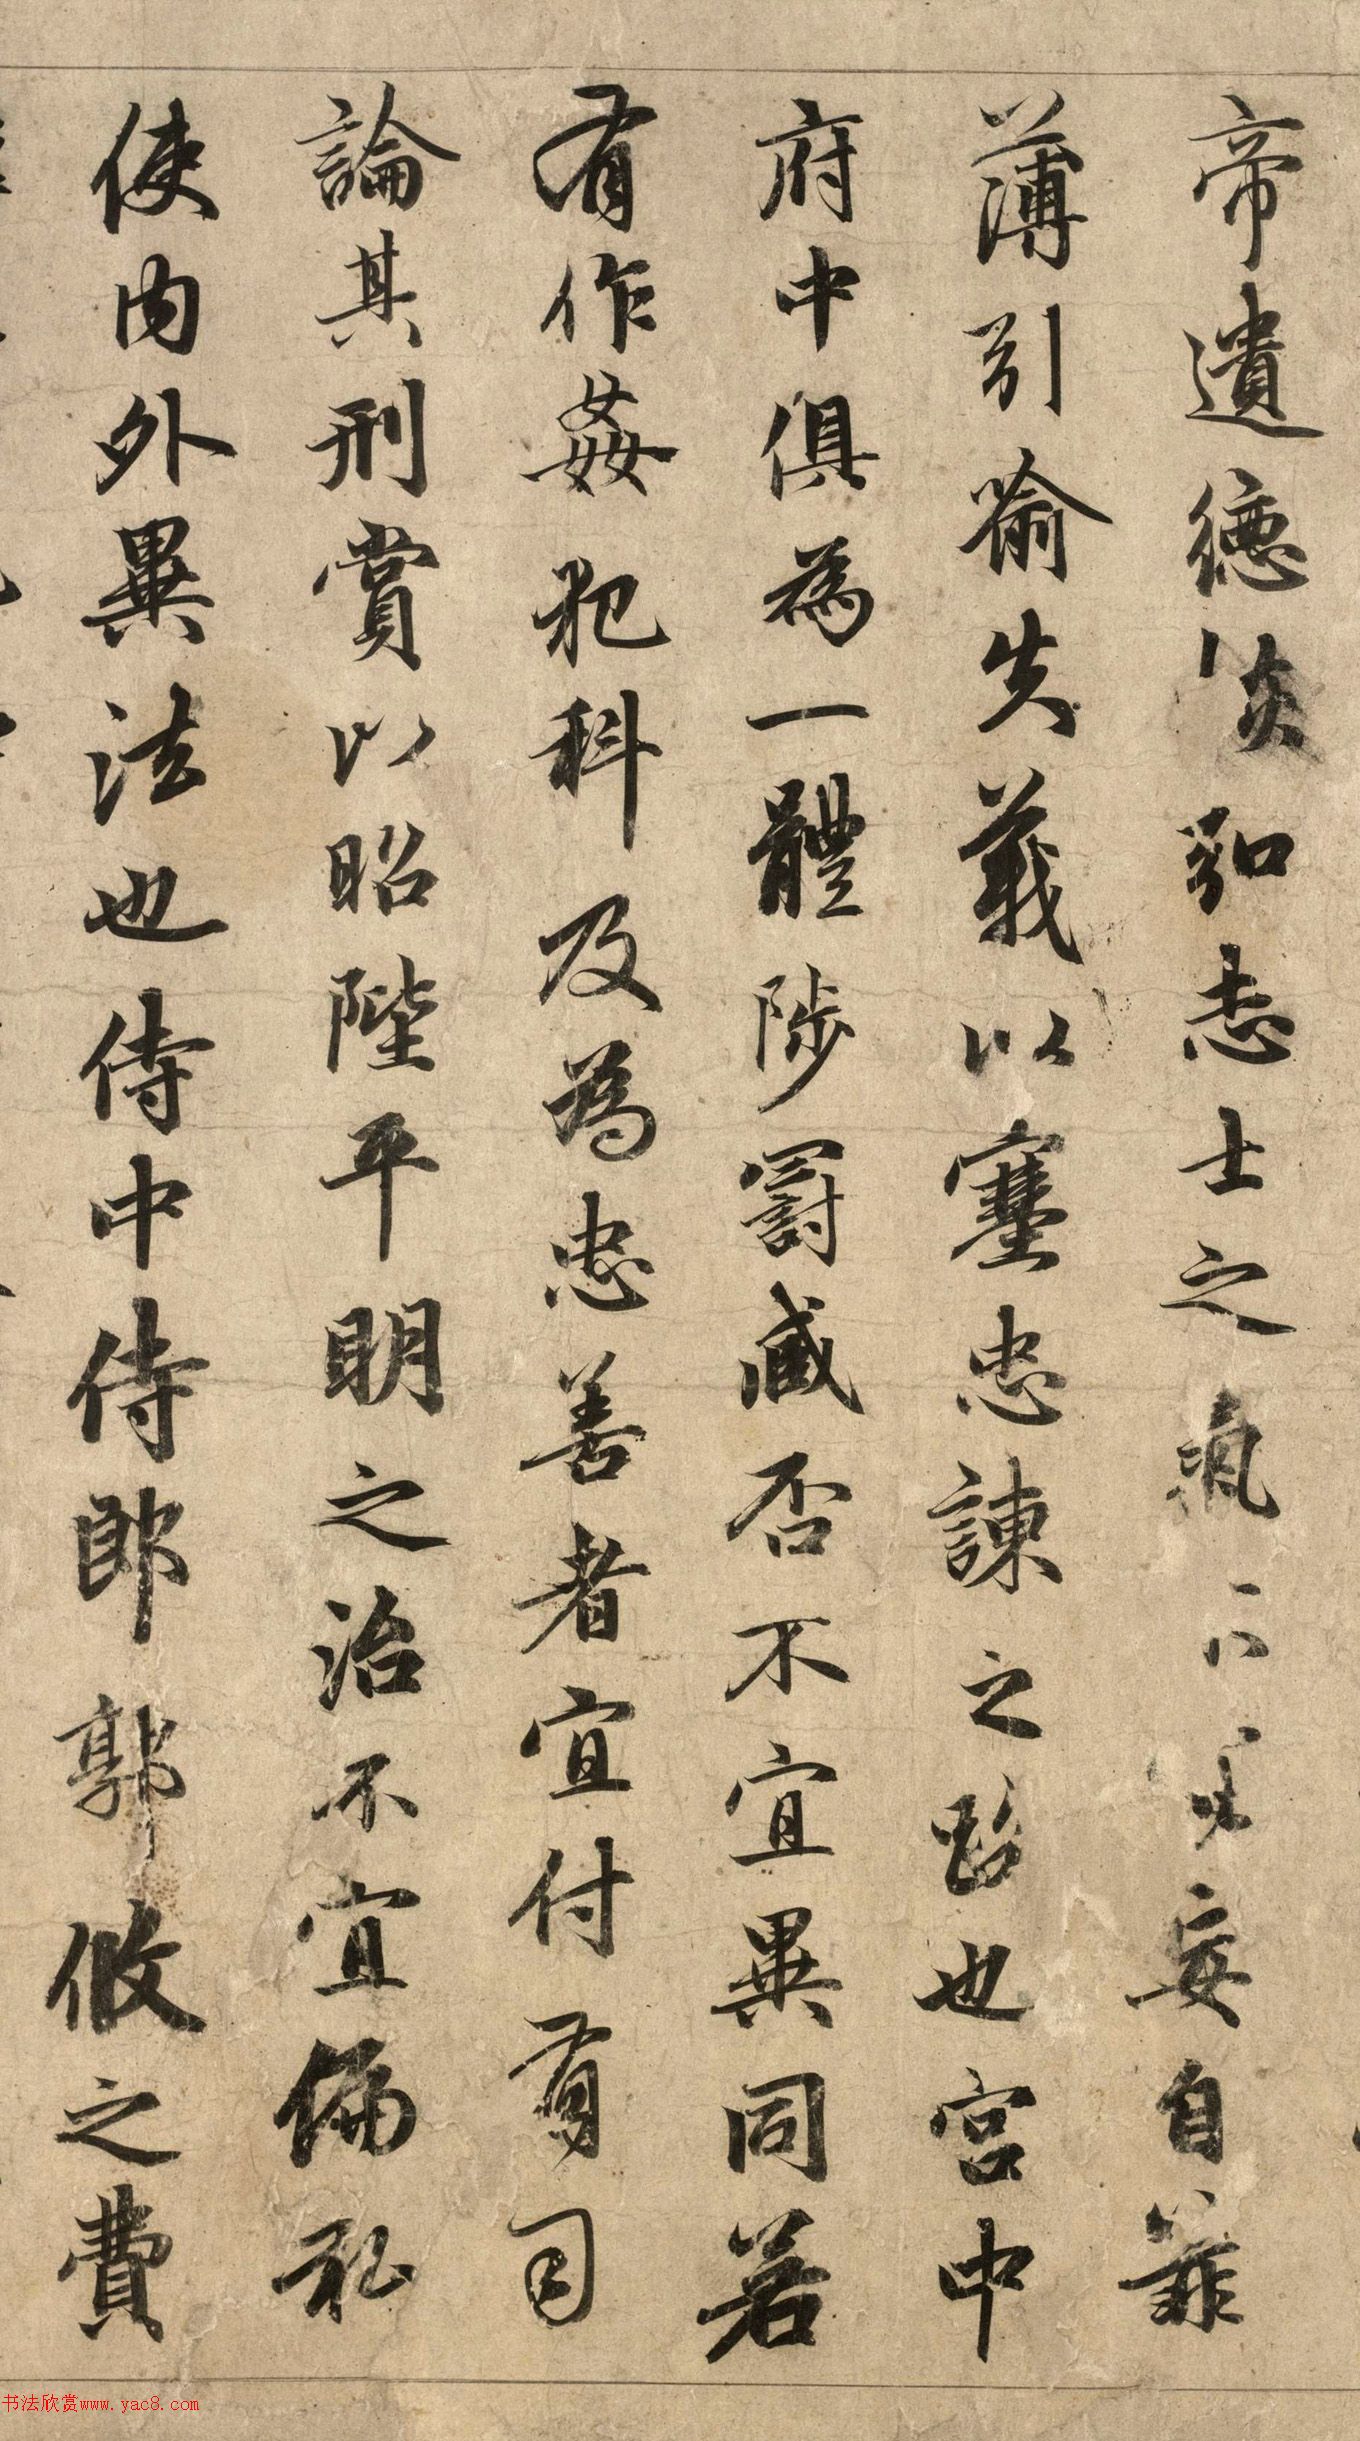 帝遺德恢弘志士之氣不宜妄自菲
薄引喻失義以塞忠諫之路也宮中
府中俱為一體陟罰臧否不宜異同若
有作姦犯科及為忠善者宜付有司
論其刑賞以昭陛平明之治不宜偏私
使內外異法也侍中侍郎郭攸之費
书法欣赏www.yac8.com